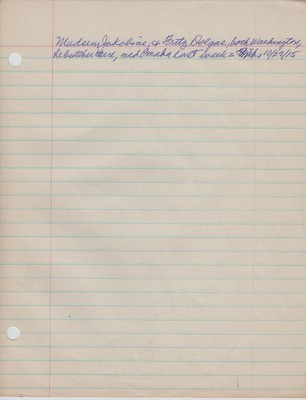 Madsen, Jakobine, & Fritz Dolgas, both Washington,
he butcher here, md Omaha last week = 10/29/15